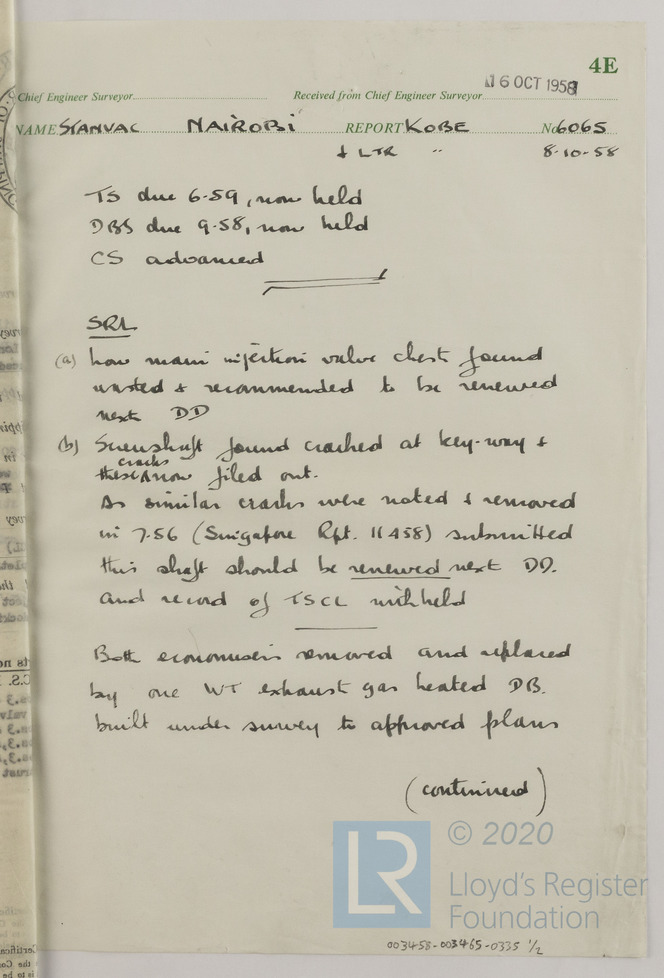 4E
16 OCT 1958
Chief Engineer Surveyor Received from Chief Engineer Surveyor
NAME STANVAC NAIROBI REPORT KOBE No. 6065
& LTR " 8-10-58
TS due 6-59, now held
DBS due 9-58, now held
CS advanced
SRL
(a) Low main injection valve chest found
wasted & recommended to be renewed
next DD
(b) Screwshaft found cracked at key-way &
these cracks now filed out.
As similar cracks were noted & removed
in 7.56 (Singapore Rpt. 11458) submitted
this shaft should be renewed next DD.
and record of TSCL withheld
Both economisers removed and replaced
by one WT exhaust gas heated DB.
built under survey to approved plans
(continued)
© 2020
LR
Lloyd's Register
Foundation
003458-003465-0335 1/2